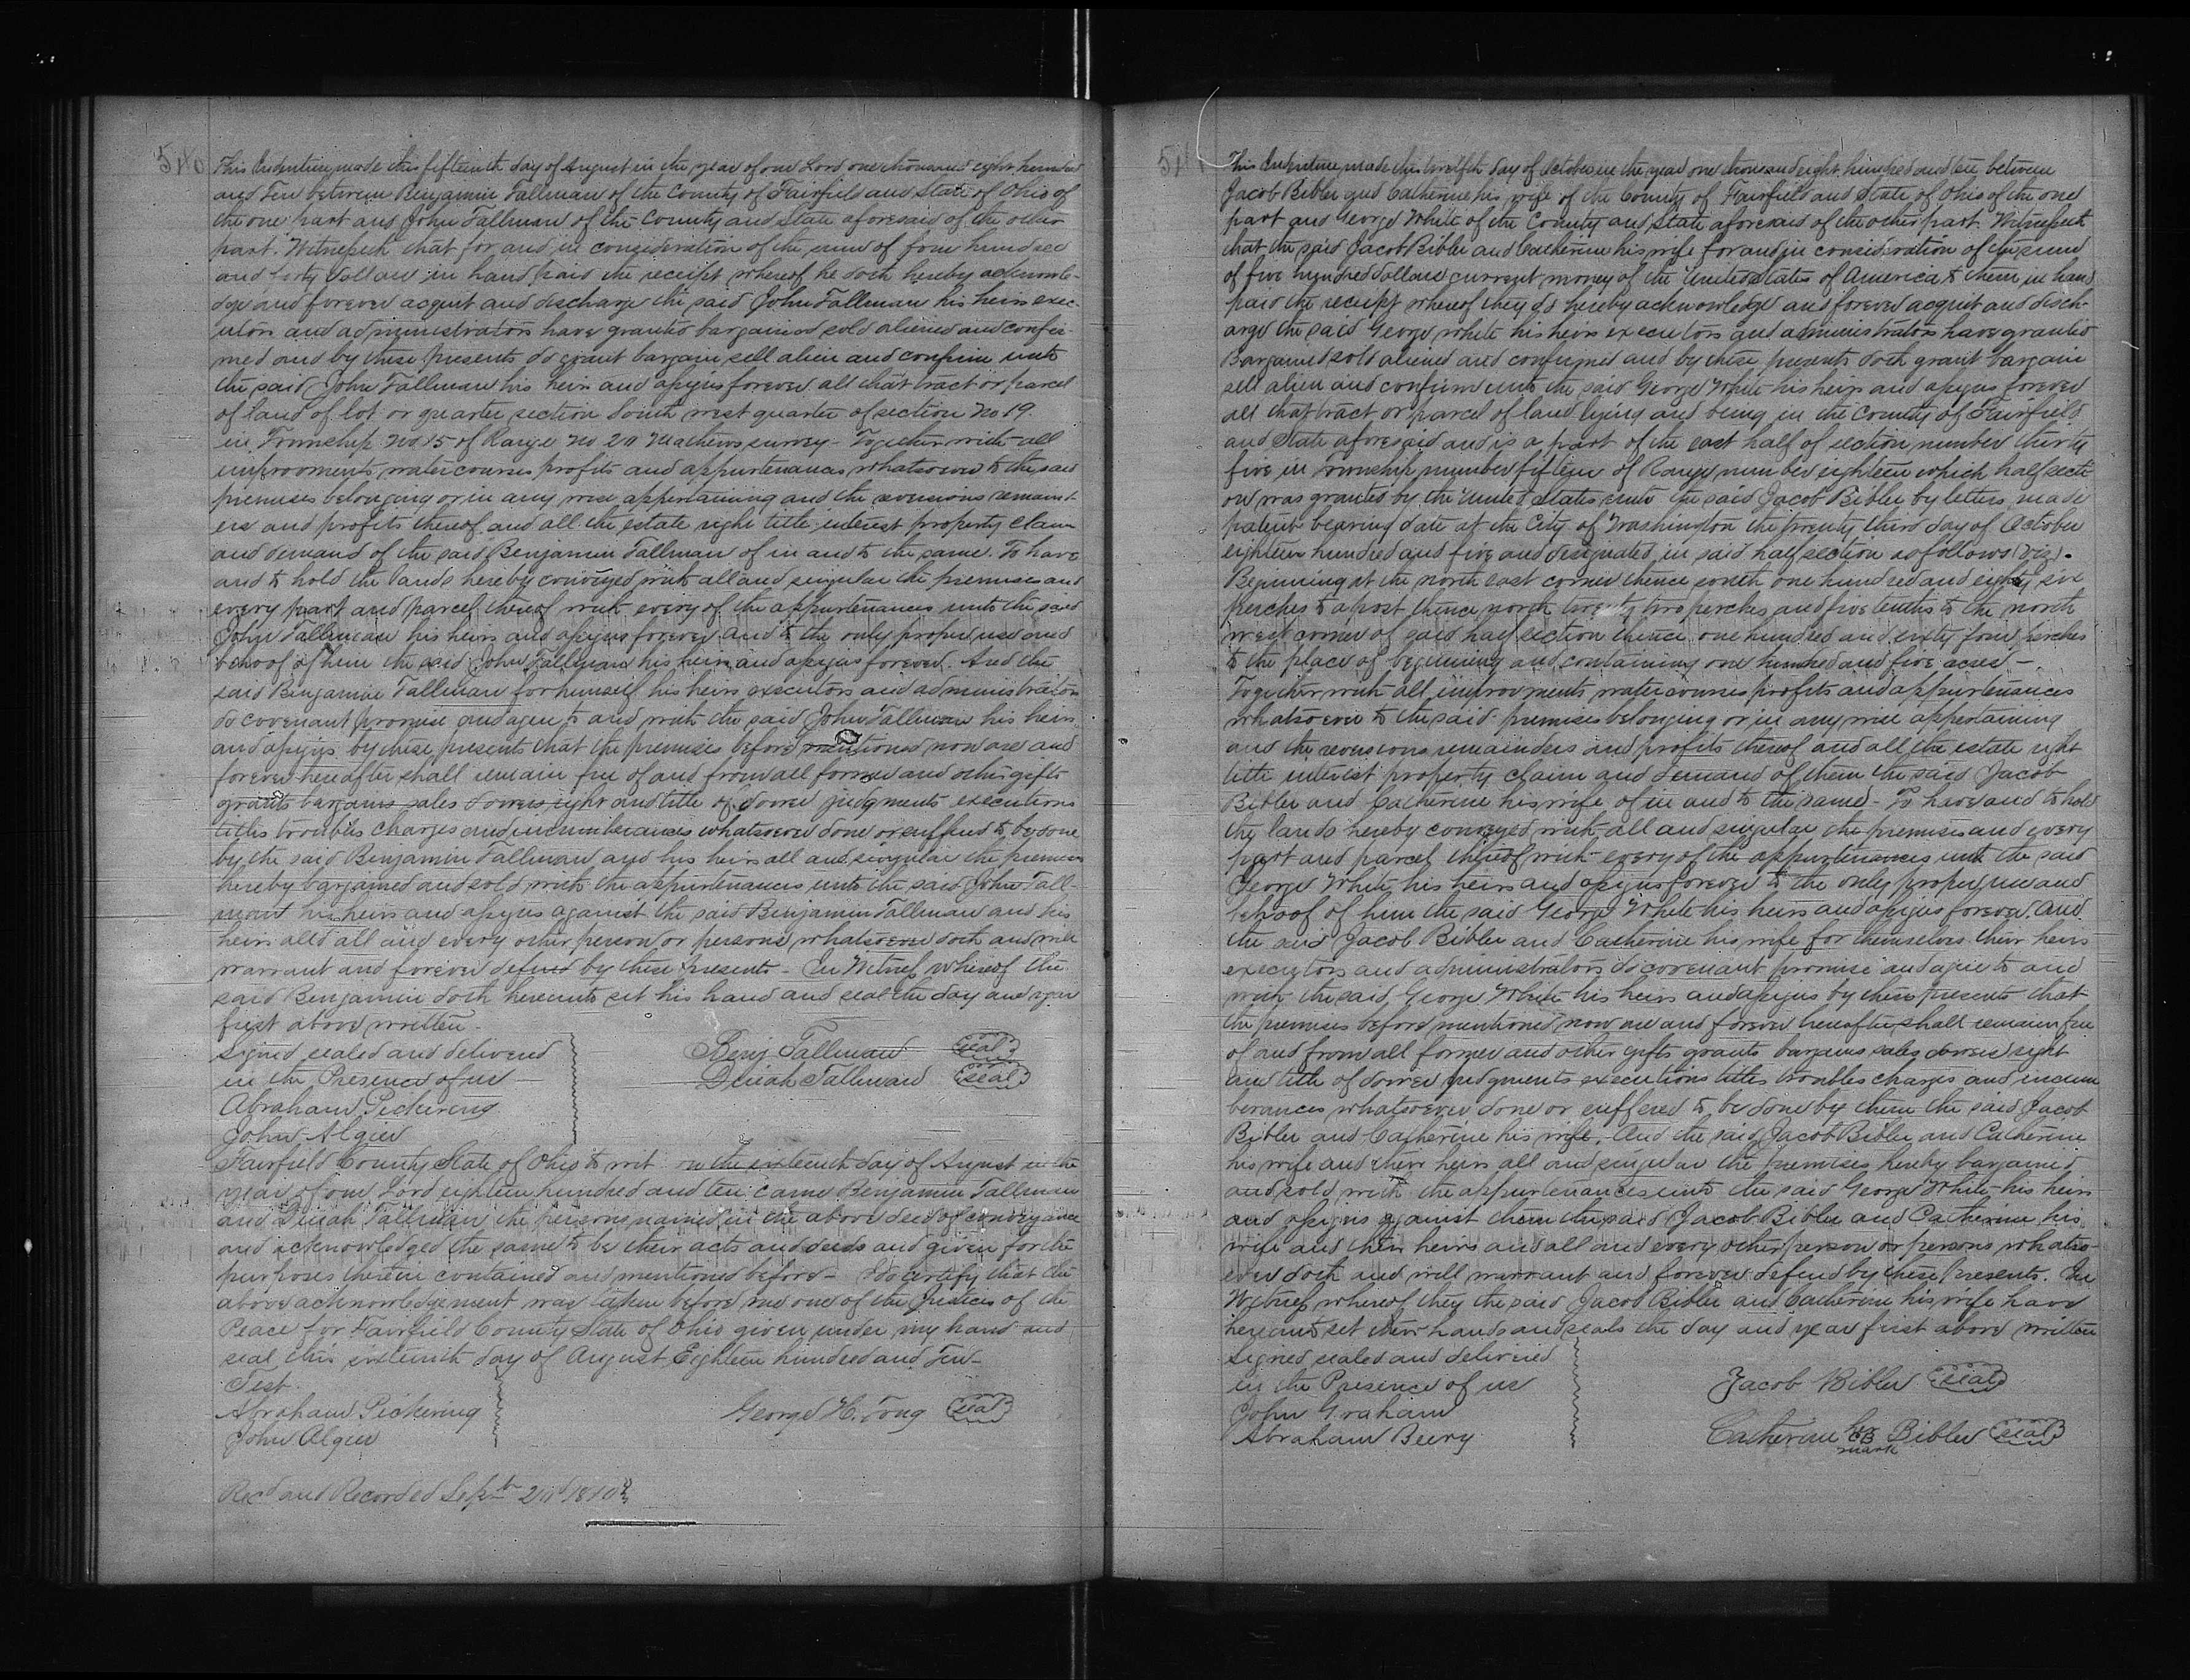 510
This Indenture made this fifteenth day of August in the year of our Lord one thousand eight hundred
and Ten between Benjamin Tallman of the County of Fairfield and State of Ohio of
the one part and John Tallman of the County and State aforesaid of the other
part. Witnesseth that for and in consideration of the sum of four hundred
and forty dollars in hand paid the receipt whereof he doth hereby acknowle-
dge and forever acquit and discharge the said John Tallman his heirs exec-
utors and administrators have granted bargained sold aliened and confir-
med and by these presents do grant bargain sell alien and confirm unto
the said John Tallman his heirs and assigns forever all that tract or parcel
of land of lot or quarter section South west quarter of section No 19
in Township No 15 of Range No 20 Mathews survey - Together with all
improvements water courses profits and appurtenances whatsoever to the said
premises belonging or in any wise appertaining and the reversions remaind
ers and profits thereof and all the estate right title interest property claim
and demand of the said Benjamin Tallman of in and to the same. To have
and to hold the lands hereby conveyed with all and singular the premises and
every part and parcel thereof with every of the appurtenances unto the said
John Tallman his heirs and assigns forever and to the only proper use and
behoof of him the said John Tallman his heirs and assigns forever. And the
said Benjamin Tallman for himself his heirs executors and administrators
do covenant promise and agree to and with the said John Tallman his heirs
and assigns by these presents that the premises before mentioned now are and
forever hereafter shall remain free of and from all former and other gifts
grants bargains sales dowers right and title of dower judgments executions
titles troubles charges and incumberances whatsoever done or suffered to be done
by the said Benjamin Tallman and his heirs all and singular the premises
hereby bargained and sold with the appurtenances unto the said John Tall-
man his heirs and assigns against the said Benjamin Tallman and his
heirs and all and every other person or persons whatsoever doth and will
warrant and forever defend by these presents - In Witness whereof the
said Benjamin doth hereunto set his hand and seal the day and year
first above written -
Signed sealed and delivered
in the Presence of us - Benj Tallman seal
Abraham Pickering Dinah Tallman seal
John Algier
Fairfield County State of Ohio to wit on the sixteenth day of August in the
year of our Lord eighteen hundred and ten came Benjamin Tallman
and Dinah Tallman the persons named in the above deed of conveyance
and acknowledged the same to be their acts and deeds and given for the
purposes therein contained and mentioned before - I do certify that the
above acknowledgement was taken before me one of the Justices of the
Peace for Fairfield County State of Ohio given under my hand and
seal this sixteenth day of August Eighteen hundred and Ten -
Test.
Abraham Pickering George H. Tong seal
John Algier
Recd and Recorded Septbr 2nd 1810
511
This Indenture made this twelfth day of October in the year one thousand eight hundred and ten between
Jacob Bibler and Catherine his wife of the County of Fairfield and State of Ohio of the one
part and George White of the County and State aforesaid of the other part. Witnesseth
that the said Jacob Bibler and Catherine his wife for and in consideration of the sum
of five hundred dollars current money of the United States of America to them in hand
paid the receipt whereof they do hereby acknowledge and forever acquit and disch-
arge the said George White his heirs executors and administrators have granted
Bargained sold aliened and confirmed and by these presents doth grant bargain
sell alien and confirm unto the said George White his heirs and assigns forever
all that tract or parcel of land lying and being in the County of Fairfield
and State aforesaid and is a part of the east half of section number thirty
five in Township number fifteen of Range number eighteen which half secti
on was granted by the United States unto the said Jacob Bibler by letters made
patent bearing date at the City of Washington the twenty third day of October
eighteen hundred and five and designated in said half section as follows (viz).
Beginning at the north east corner thence south one hundred and eighty six
perches to a post thence north twenty two perches and five tenths to the north
west corner of said half section thence one hundred and sixty four perches
to the place of beginning and containing one hundred and five acres -.
Together with all improvments water courses profits and appurtenances
whatsoever to the said premises belonging or in any wise appertaining
and the reversions remainders and profits thereof and all the estate right
title interest property claim and demand of them the said Jacob
Bibler and Catherine his wife of in and to the same - To have and to hold
the lands hereby conveyed with all and singular the premises and every
part and parcel thereof with every of the appurtenances unto the said
George White his heirs and assigns forever to the only proper use and
behoof of him the said George White his heirs and assigns forever. And
the said Jacob Bibler and Catherine his wife for themselves their heirs
executors and administrators do covenant promise and agree to and
with the said George White his heirs and assigns by these presents that
the premises before mentioned now are and forever hereafter shall remain free
of and from all former and other gifts grants bargains sales dowers right
and title of dower judgments executions titles troubles charges and incum
berances whatsoever done or suffered to be done by them the said Jacob
Bibler and Catherine his wife. And the said Jacob Bibler and Catherine
his wife and their heirs all and singular the premises hereby bargained
and sold with the appurtenances unto the said George White his heirs
and assigns against them the said Jacob Bibler and Catherine his
wife and their heirs and all and every other person or persons whatso-
ever doth and will warrant and forever defend by these Presents. In
Witness whereof they the said Jacob Bibler and Catherine his wife have
hereunto set their hands and seals the day and year first above written
Signed sealed and delivered
in the Presence of us Jacob Bibler seal
John Graham
Abraham Beery Catherine her CB mark Bibler seal